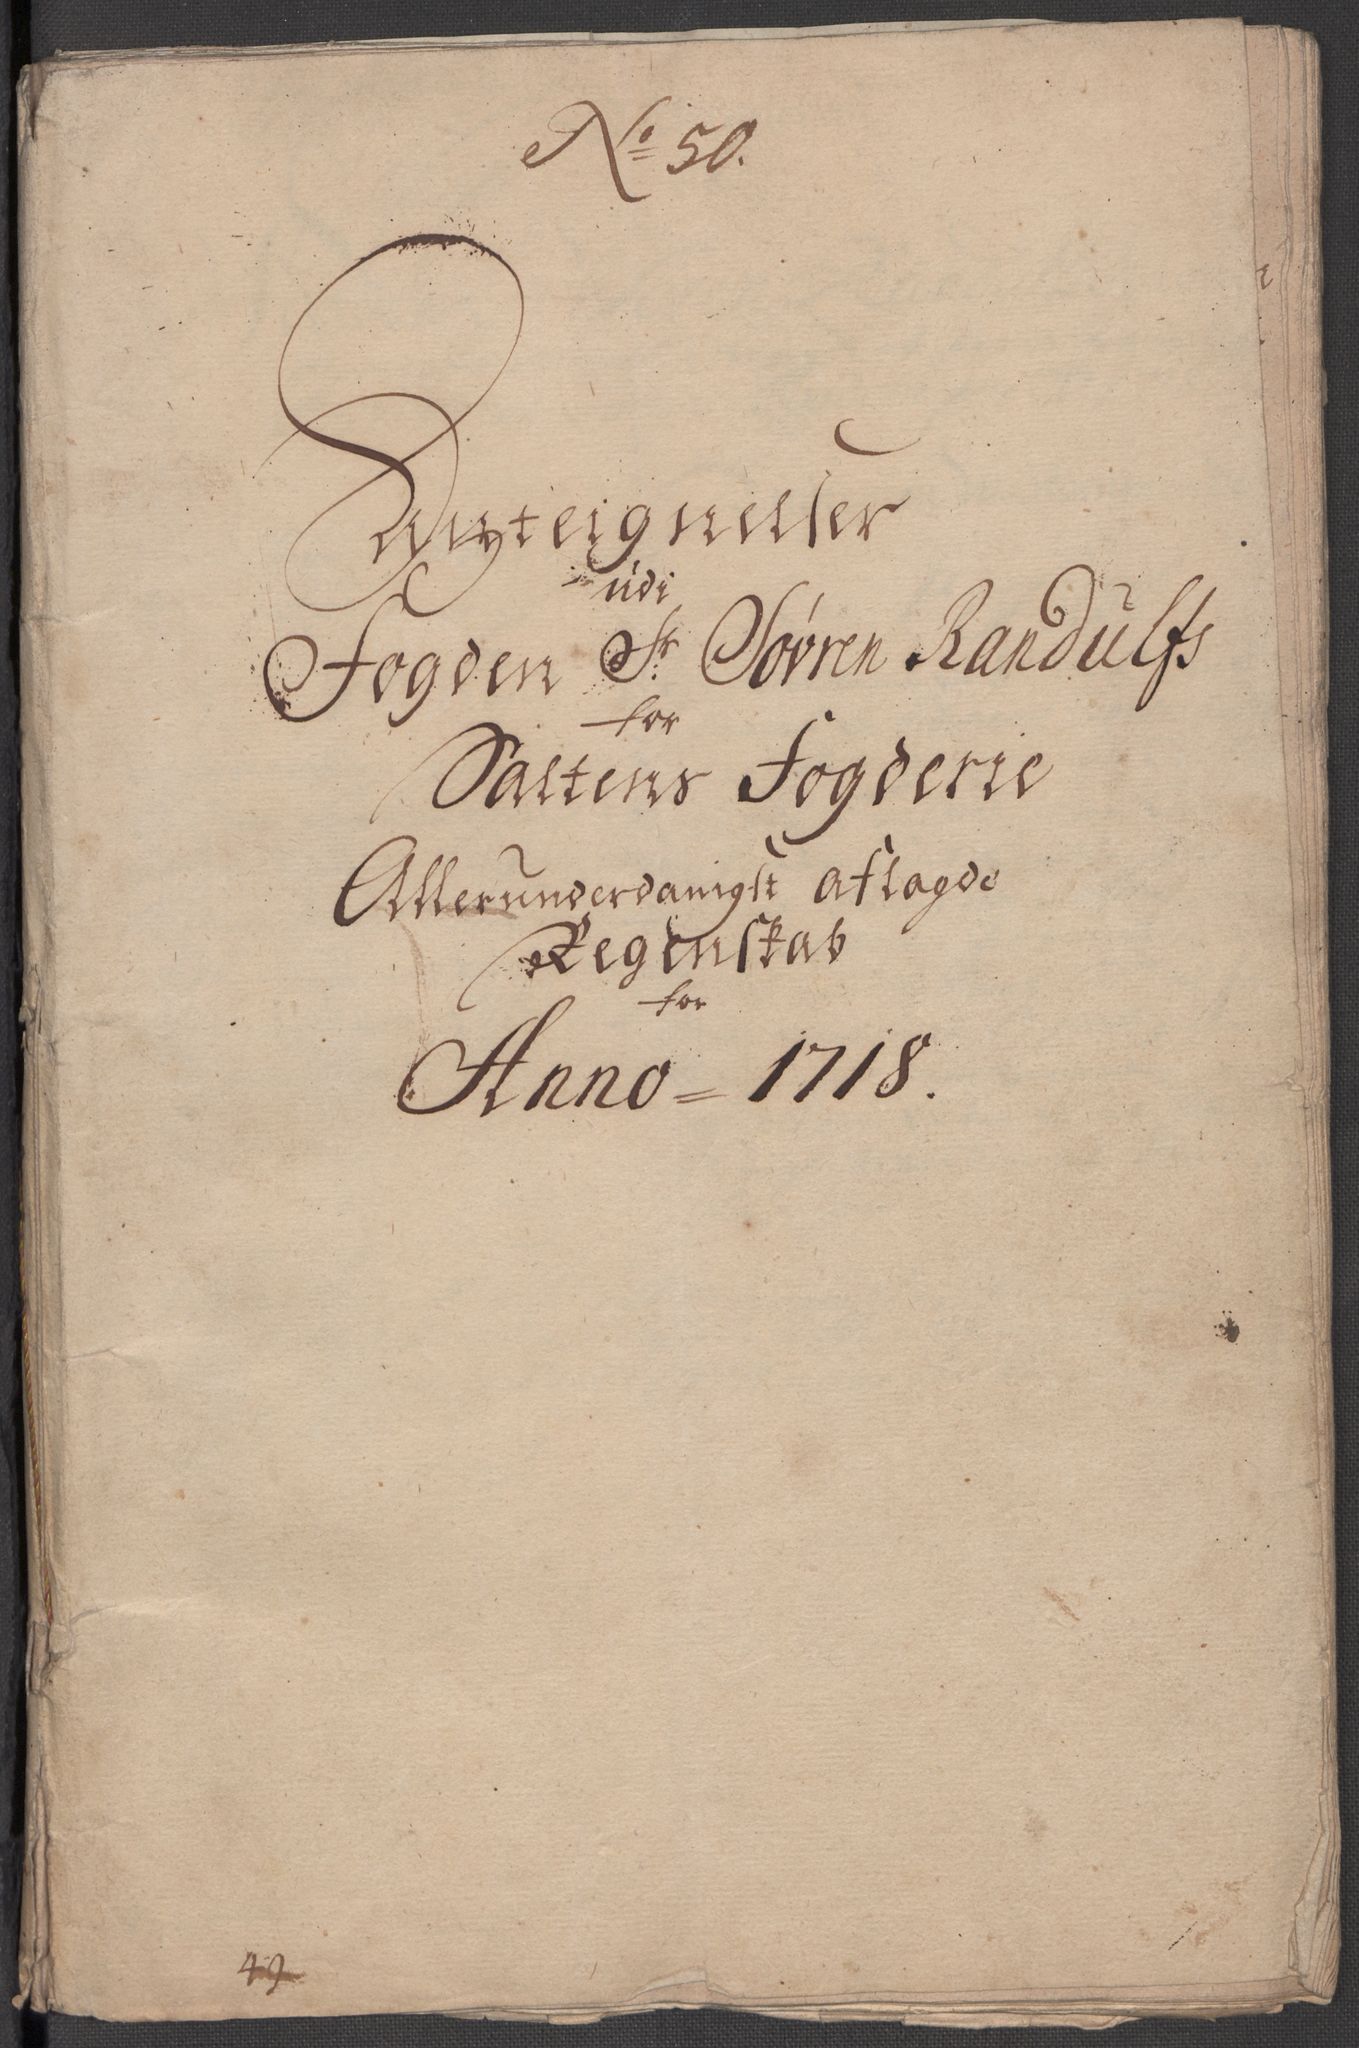 No 50.
Antegnelser
udi
Fogden Sr Søvren Randulfs
for
Saltens Fogderie
Allerunderdanigst aflagde
Regenskab
for
Anno = 1718.
49